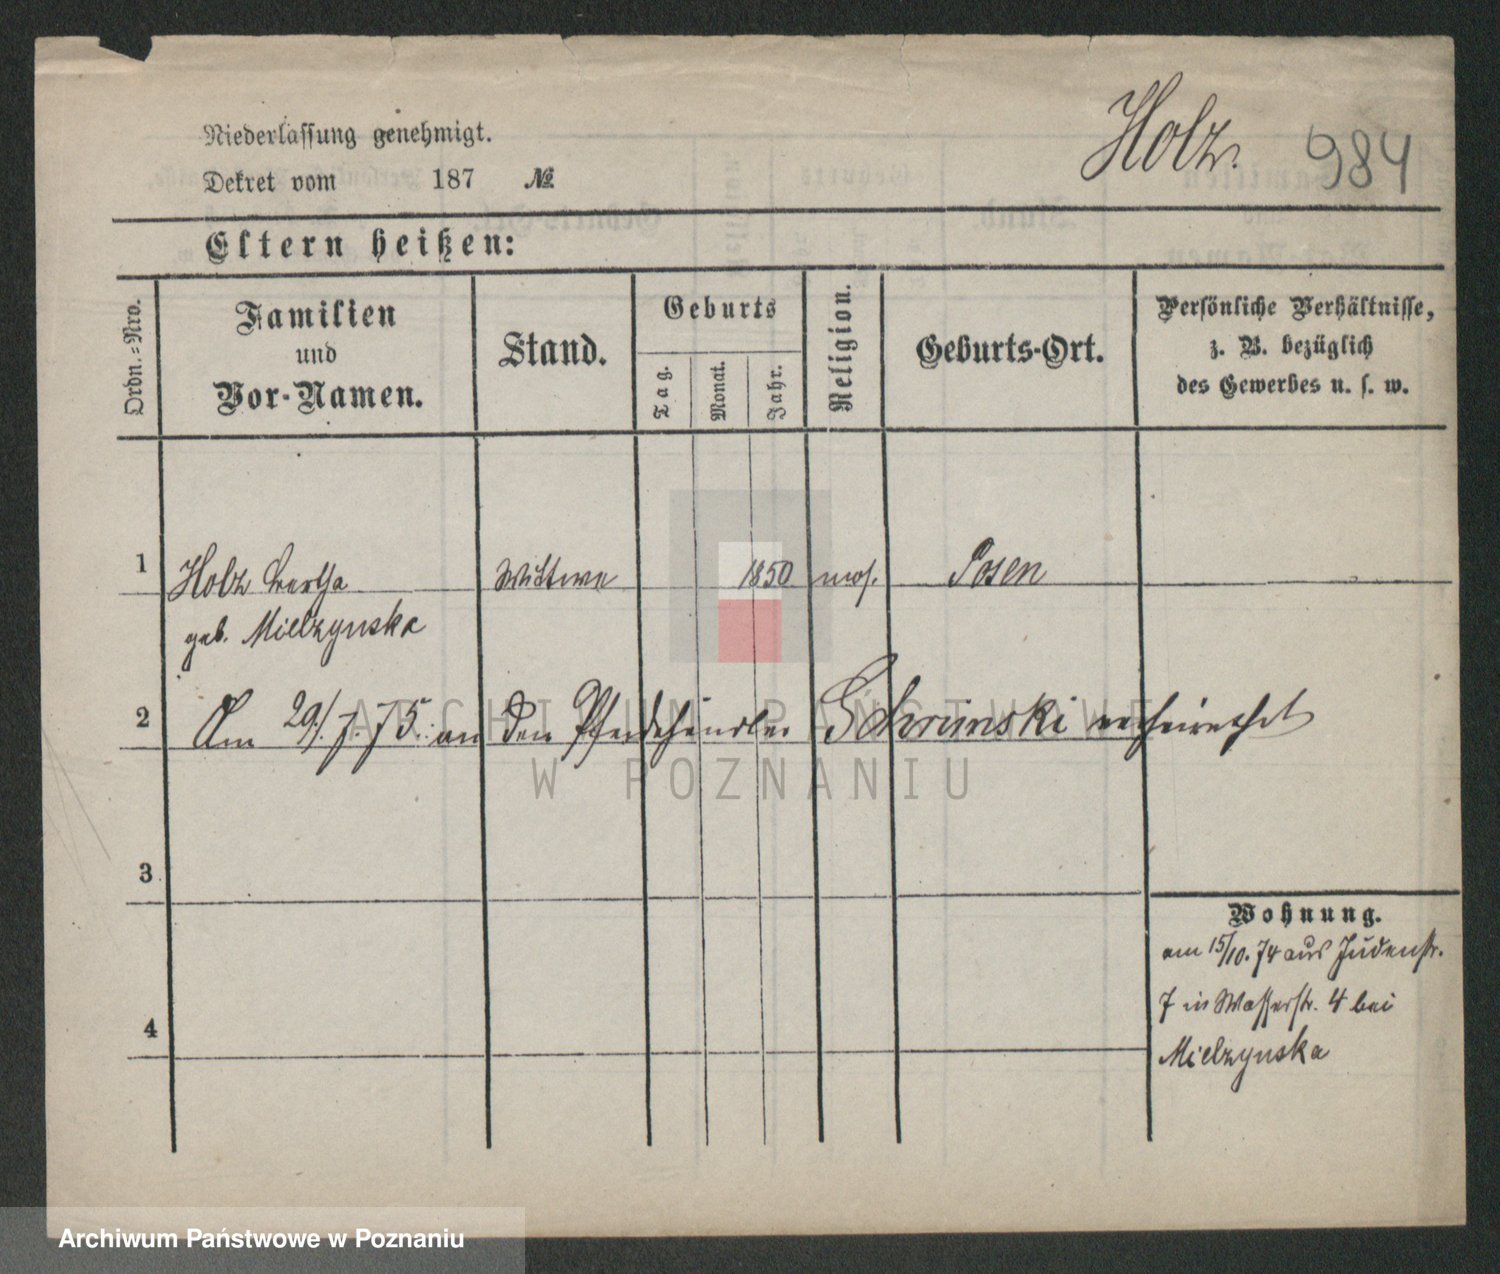 Niederlassung genehmigt.
Dekret vom 187 №
Holz. 984
Eltern heißen:
Ordn.=Nro.
Familien
und
Vor-Namen.
Stand.
Geburts
Tag.
Monat.
Jahr.
Religion.
Geburts-Ort.
Persönliche Verhältnisse,
z. B. bezüglich
des Gewerbes u. s. w.
1 Holz Bertha Wittwe 1850 mos. Posen
geb. Mielzynska
2 Am 29./7. 75. an den Pferdehändler Schrimski verheirathet
3
4
Wohnung.
am 15/10. 74 aus Judenstr.
7 in Wasserstr. 4 bei
Mielzynska
ARCHIWUM PAŃSTWOWE
W POZNANIU
Archiwum Państwowe w Poznaniu